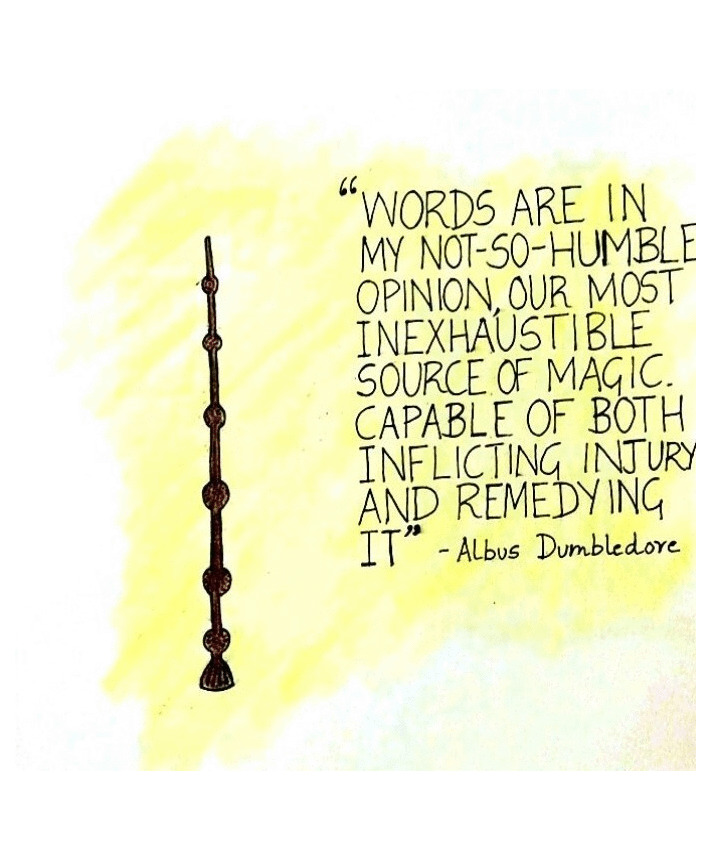 “WORDS ARE IN
MY NOT-SO-HUMBLE
OPINION, OUR MOST
INEXHAUSTIBLE
SOURCE OF MAGIC.
CAPABLE OF BOTH
INFLICTING INJURY
AND REMEDYING
IT” - Albus Dumbledore